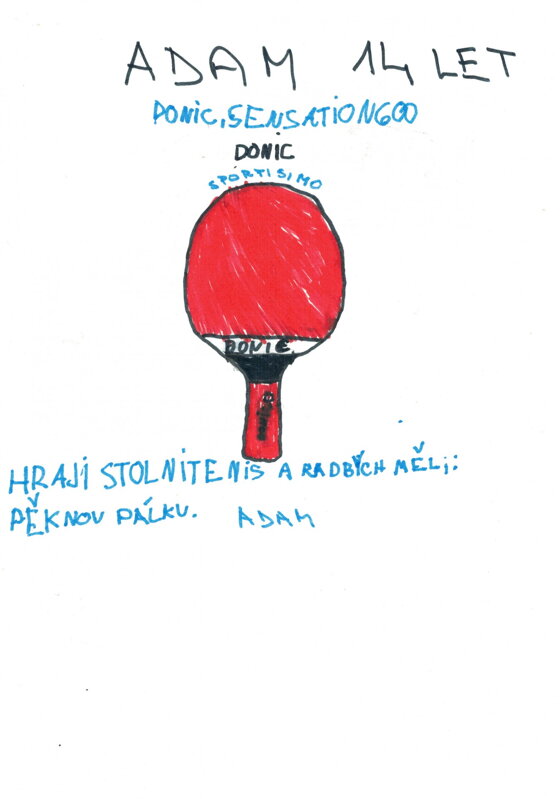 ADAM 14 LET
DONIC, SENSATION600
DONIC
SPORTISIMO
DONIC
HRAJI STOLNITENIS A RADBYCH MĚLI:
PĚKNOU PÁLKU. ADAM